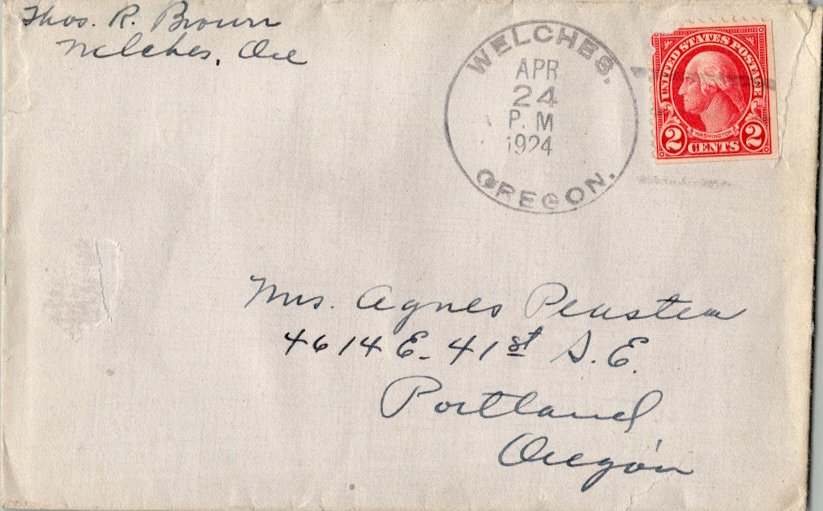 Thos. R. Brown
Welches, Ore
WELCHES,
APR
24
P. M
1924
OREGON.
UNITED STATES POSTAGE
WASHINGTON
2 CENTS 2
Mrs. Agnes
4614 E. 41st S.E.
Portland
Oregon